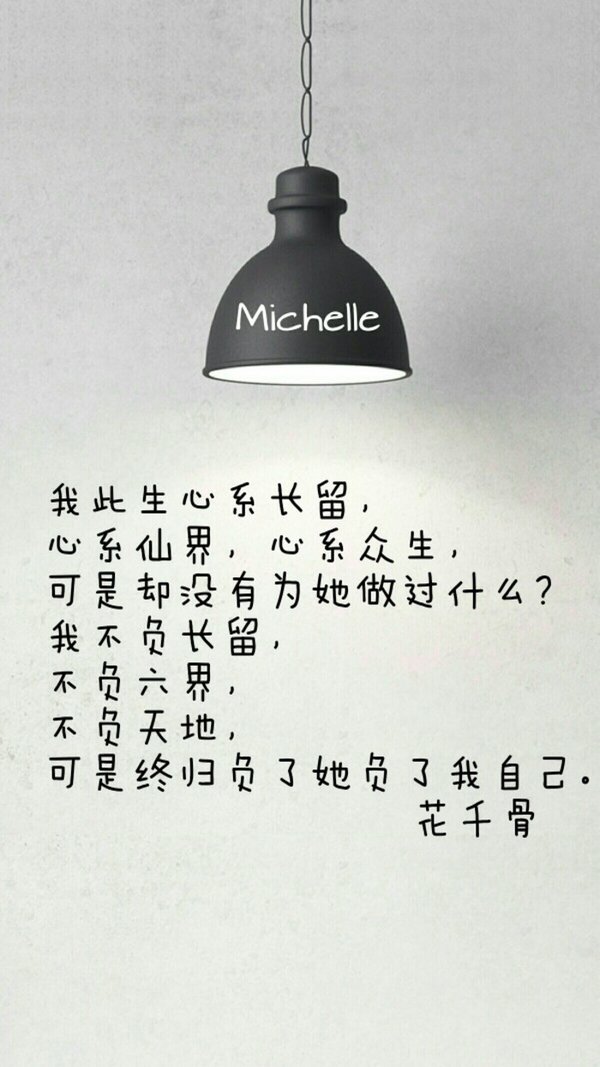 Michelle
我此生心系长留，
心系仙界，心系众生，
可是却没有为她做过什么？
我不负长留，
不负六界，
不负天地，
可是终归负了她负了我自己。
花千骨